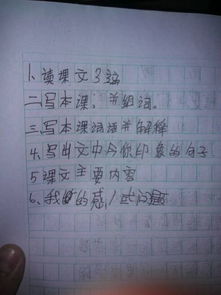 1、读课文3遍
二写本课,并组词。
三写本课词语并解释
4、写出文中令你印象的句子
5课文主要内容
6、我的感